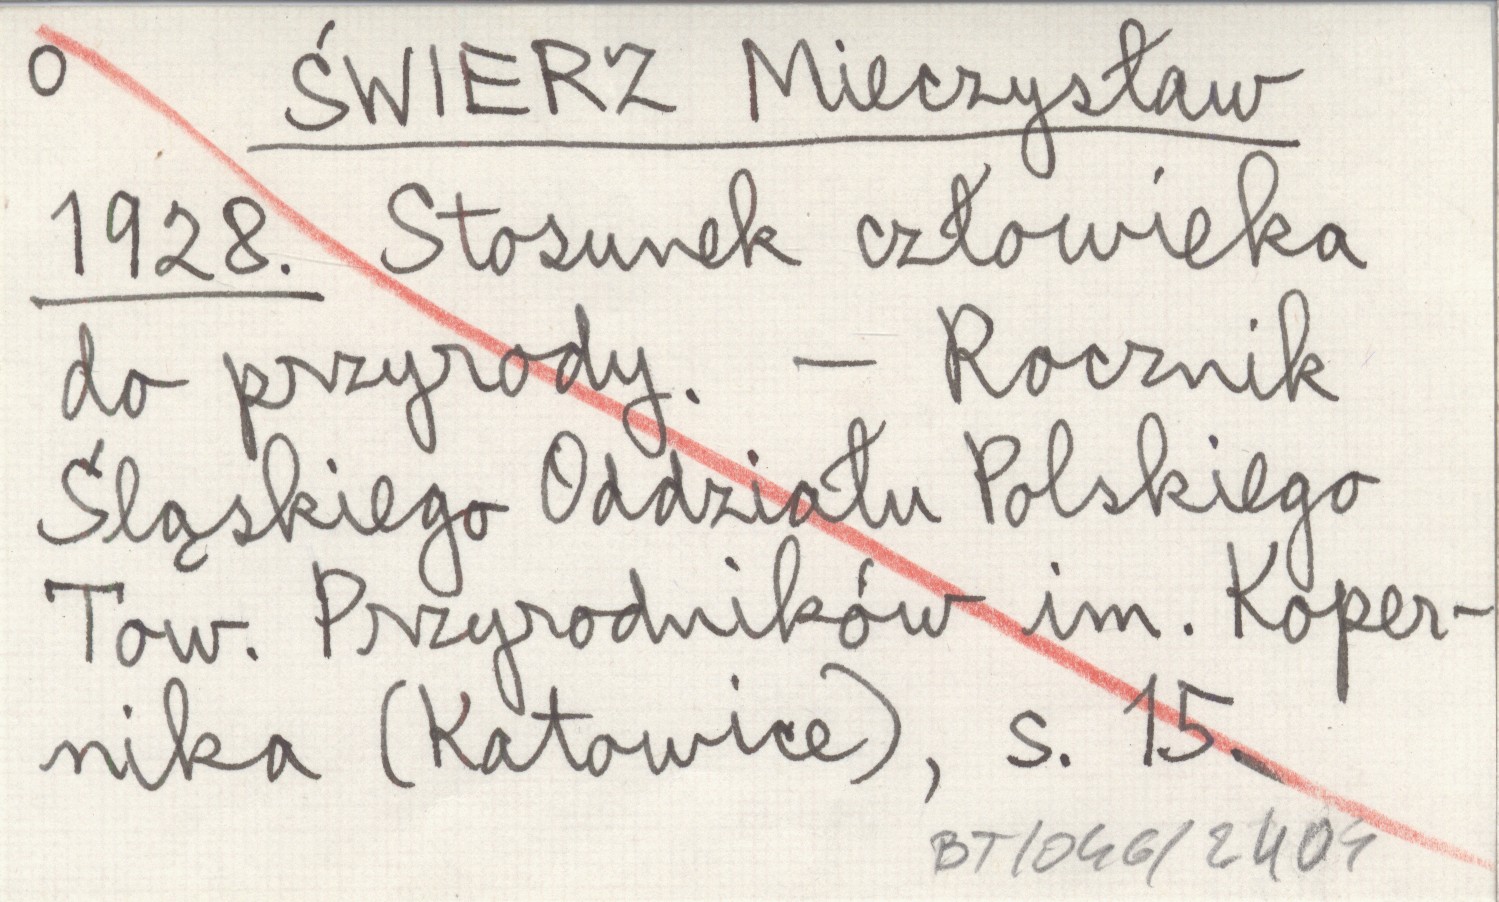 o ŚWIERZ Mieczysław
1928. Stosunek człowieka
do przyrody. — Rocznik
Śląskiego Oddziału Polskiego
Tow. Przyrodników im. Koper-
nika (Katowice), s. 15.